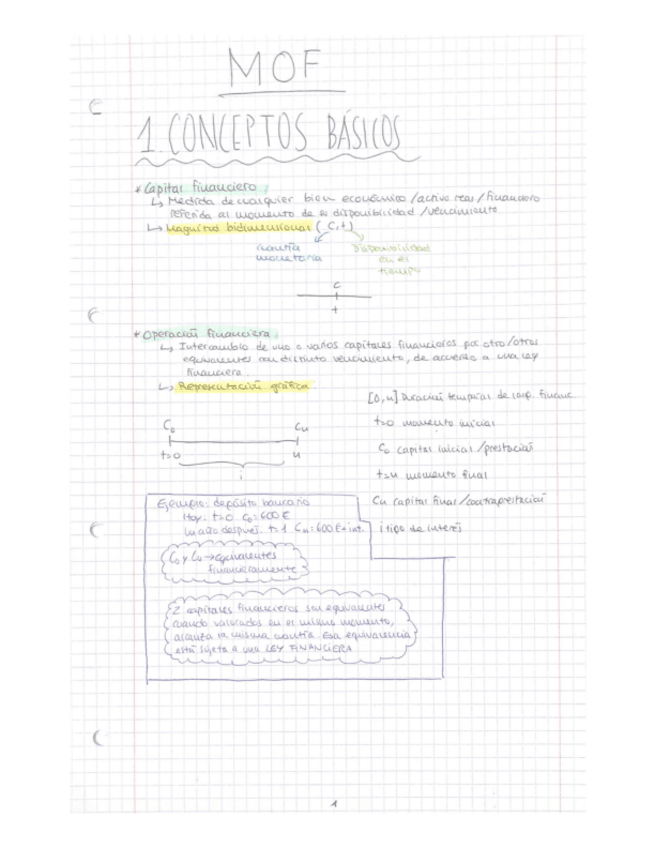 MOF
1. CONCEPTOS BÁSICOS
* Capital financiero:
↳ Medida de cualquier bien económico/activo real/financiero
referida al momento de su disponibilidad/vencimiento
↳ Magnitud bidimensional (C,t)
cuantía monetaria
disponibilidad en el tiempo
C
t
* Operación financiera:
↳ Intercambio de uno o varios capitales financieros por otro/otros
equivalentes con distinto vencimiento, de acuerdo a una ley
financiera.
↳ Representación gráfica
[0,n] Duración temporal de la op. financ.
C₀ Cn
t=0 momento inicial
t=0 n
C₀ capital inicial/prestación
i
t=n momento final
Cn capital final/contraprestación
i tipo de interés
Ejemplo: depósito bancario
Hoy: t=0 C₀=600€
un año después: t=1 Cn=600€+int.
C₀ y Cn → equivalentes
financieramente
2 capitales financieros son equivalentes
cuando valorados en el mismo momento,
alcanza la misma cuantía. Esa equivalencia
está sujeta a una LEY FINANCIERA
1